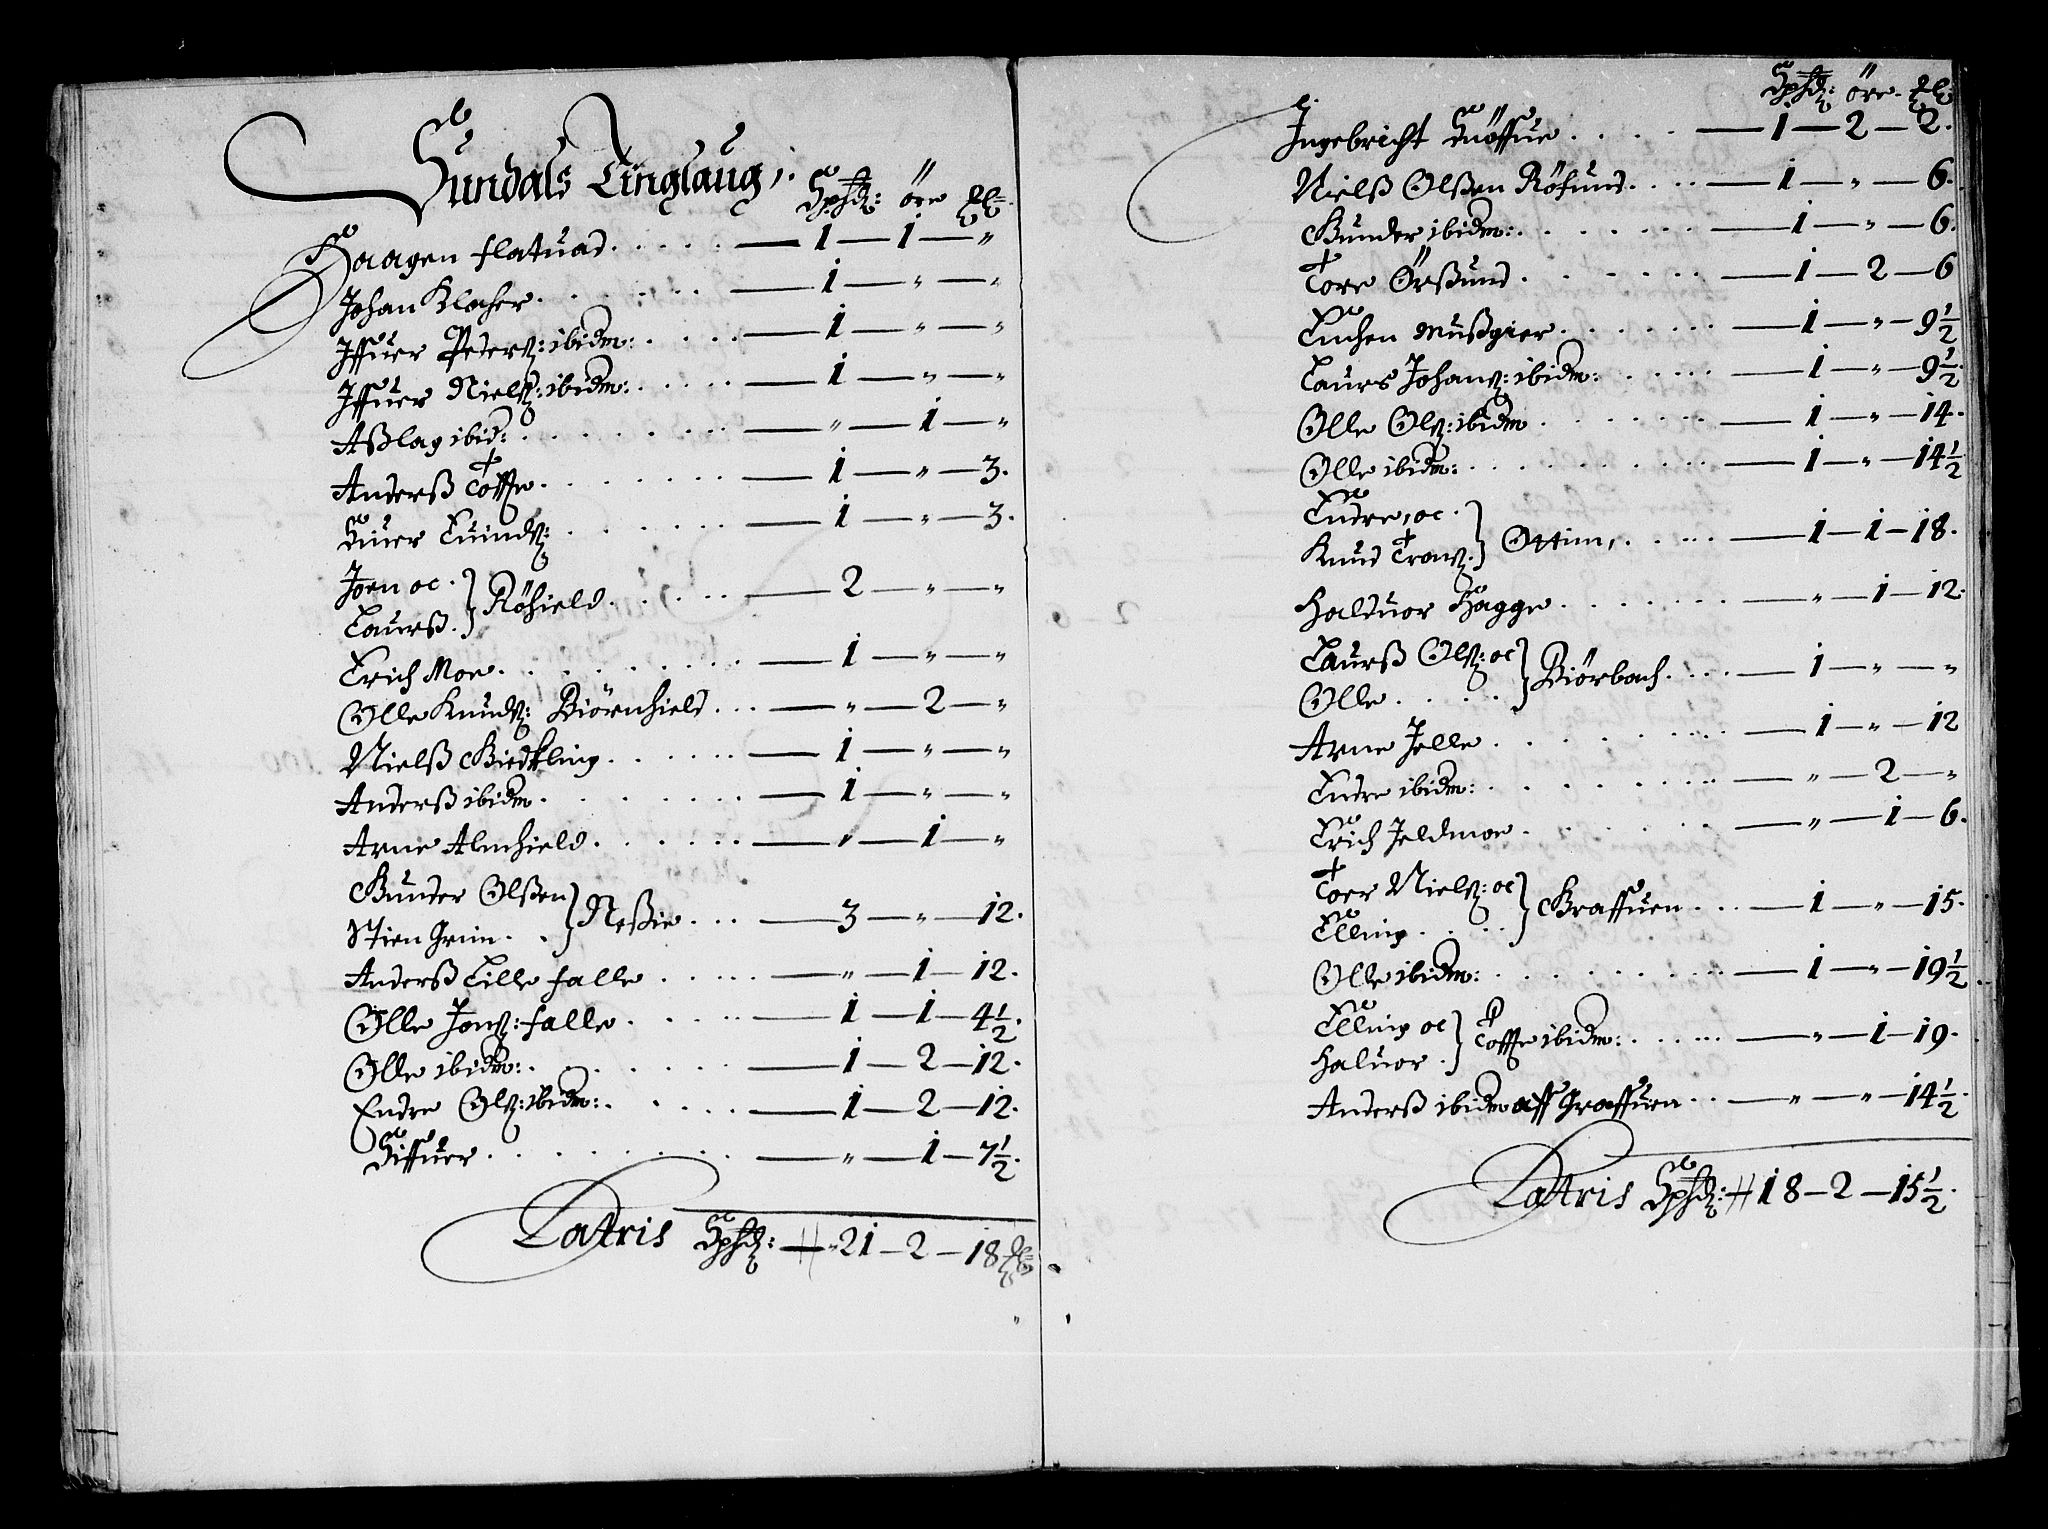 Sundals Tinglaug,
Spsd: öre
Haagen flatuad . . . . . — 1 — 1 — "
Johan Klocher . . . . . . — 1 — " — "
Jffuer Peters: ibidm: . . . . — 1 — " — "
Jffuer Niels: ibidm: . . . . — 1 — " — "
Aßlag ibid: . . . . . . . — " — 1 — "
Anderß Toffte . . . . . . — 1 — " — 3.
Siuer Euinds: . . . . . . — 1 — " — 3.
Joen oc.
Laurß. } Röhield . . . . . . — 2 — " — "
Erich Moe . . . . . . . . — 1 — " — "
Olle Knuds: Biörnhield . . . — " — 2 — "
Nielß Giedkling . . . . . . — 1 — " — "
Anderß ibidm . . . . . . — 1 — " — "
Arne Almhield . . . . . . — " — 1 — "
Gunder Olßen
Stien Grim . . } Neßie . . . . — 3 — " — 12.
Anderß Lille falle . . . . . — " — 1 — 12.
Olle Jons: falle . . . . . — 1 — 1 — 4½.
Olle ibidm: . . . . . . . — 1 — 2 — 12.
Endre Ols: ibidm: . . . . . — 1 — 2 — 12.
Siffuer . . . . . . . . . — " — 1 — 7½.
Latris Spsd: — 21 — 2 — 18
Spsd: öre.
Ingebricht Snöffue . . . . — 1 — 2 — 2.
Nielß Olßen Röhund . . . . — 1 — " — 6.
Gunder ibidm: . . . . . . — 1 — " — 6.
Tore Örßund . . . . . . — 1 — 2 — 6
Euhen Mußgier . . . . . . — 1 — " — 9½
Laurs Johans: ibidm: . . . . — 1 — " — 9½.
Olle Ols: ibidm . . . . . . — 1 — " — 14.
Olle ibidm: . . . . . . . — 1 — " — 14½
Endre, oc.
Knud Trons. } Ottim, . . . . . — 1 — 1 — 18.
Halduor Hagge . . . . . . — " — 1 — 12.
Laurß Ols: oc
Olle . . . . . } Biörbach . . . . — 1 — " — "
Arne Jelle . . . . . . . — 1 — " — 12
Endre ibidm: . . . . . . — " — 2 — "
Erich Jeldmoe . . . . . . — " — 1 — 6.
Toer Niels: oc
Elling . . . . . } Graffuen . . . — 1 — " — 15.
Olle ibidm: . . . . . . . — 1 — " — 19½
Elling oc
Haluor . } Toffte ibidm: . . . . . — " — 1 — 19.
Anderß ibidm aff Graffuen . . — " — " — 14½.
Latris Spsd: 18 — 2 — 15½.